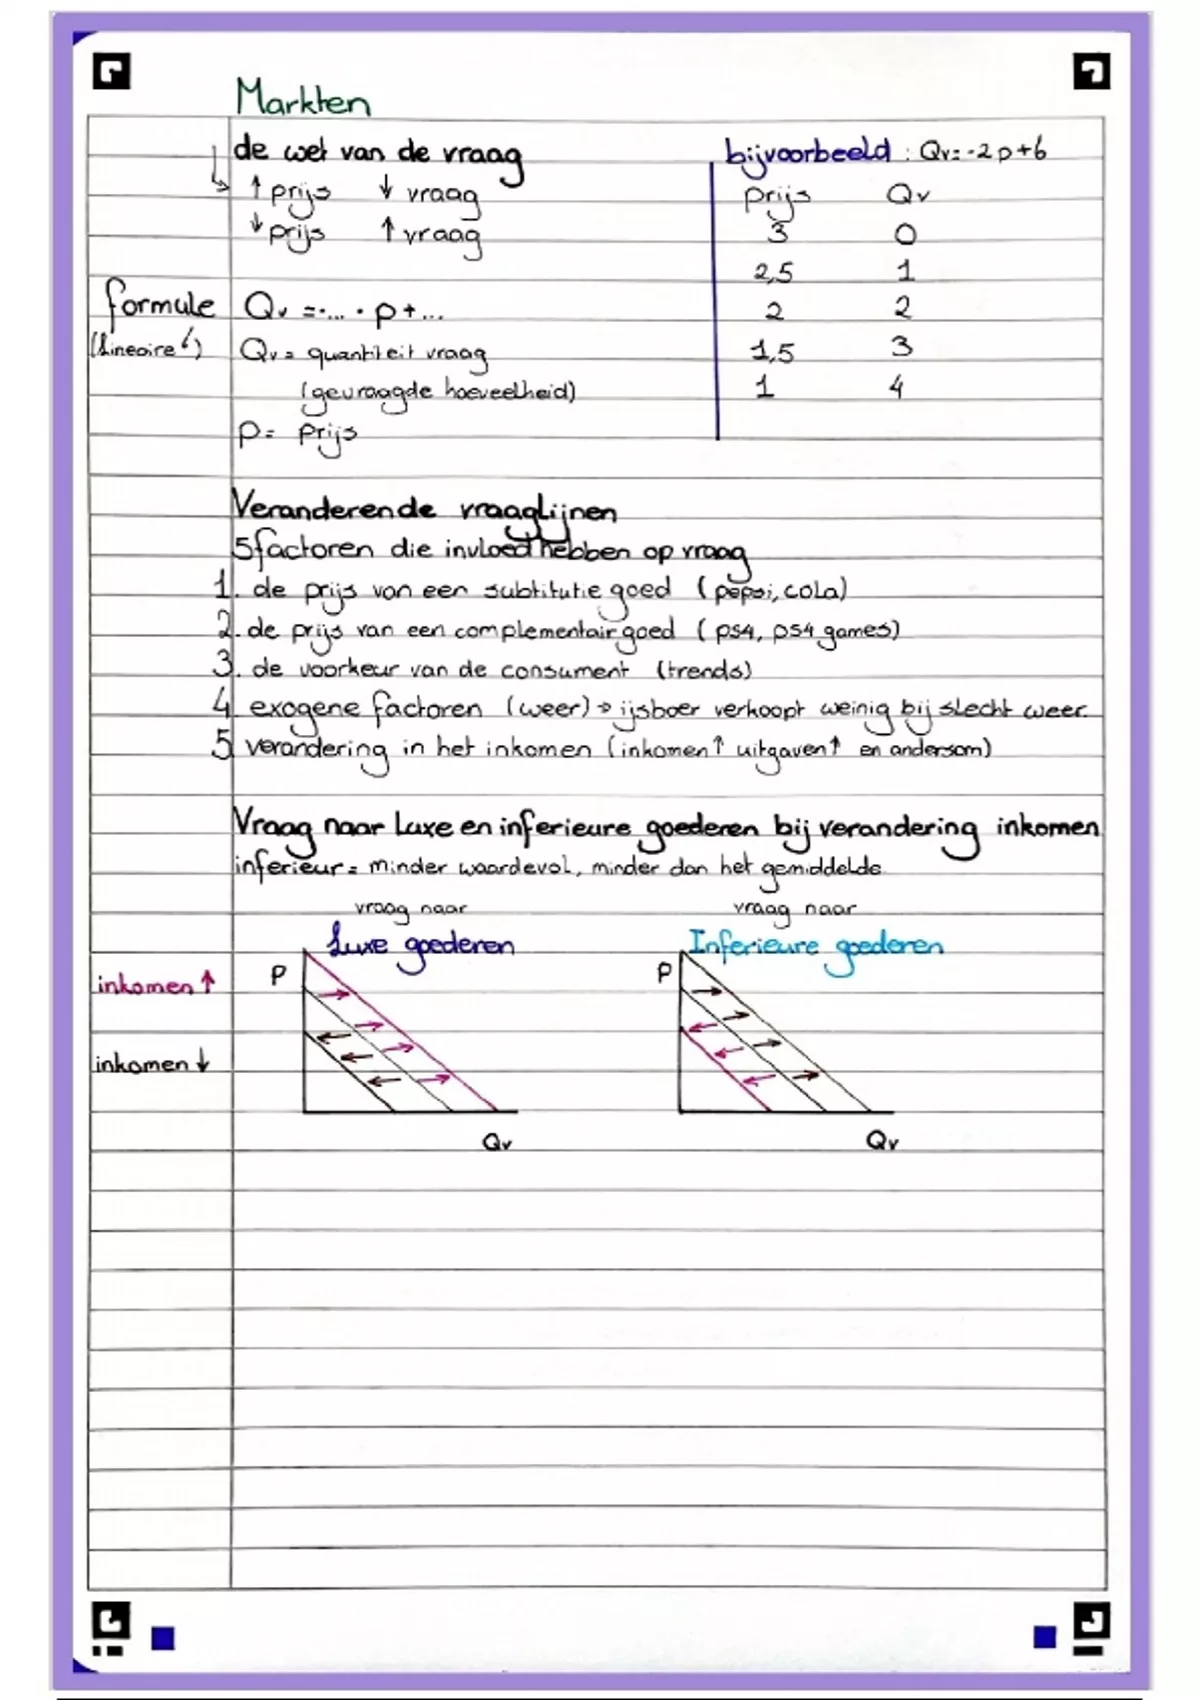 Markten
de wet van de vraag
↑ prijs ↓ vraag
↓ prijs ↑ vraag
formule Qv = ... · p + ...
(Lineaire)
Qv = quantiteit vraag
(gevraagde hoeveelheid)
p = prijs
bijvoorbeeld : Qv = -2p+6
prijs Qv
3 0
2,5 1
2 2
1,5 3
1 4
Veranderende vraaglijnen
5 factoren die invloed hebben op vraag
1. de prijs van een subtitutie goed (pepsi, cola)
2. de prijs van een complementair goed (ps4, ps4 games)
3. de voorkeur van de consument (trends)
4 exogene factoren (weer) → ijsboer verkoopt weinig bij slecht weer.
5 verandering in het inkomen (inkomen↑ uitgaven↑ en andersom)
Vraag naar Luxe en inferieure goederen bij verandering inkomen
inferieur = minder waardevol, minder dan het gemiddelde
vraag naar
Luxe goederen
inkomen ↑
inkomen ↓
P
Qv
vraag naar
Inferieure goederen
P
Qv